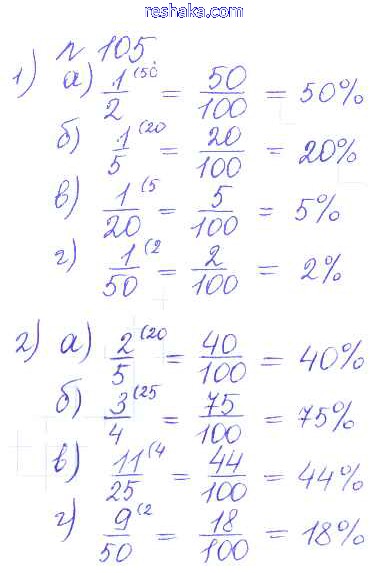 reshaka.com
№ 105
1) а) 1/2 (50 = 50/100 = 50%
б) 1/5 (20 = 20/100 = 20%
в) 1/20 (5 = 5/100 = 5%
г) 1/50 (2 = 2/100 = 2%
2) а) 2/5 (20 = 40/100 = 40%
б) 3/4 (25 = 75/100 = 75%
в) 11/25 (4 = 44/100 = 44%
г) 9/50 (2 = 18/100 = 18%